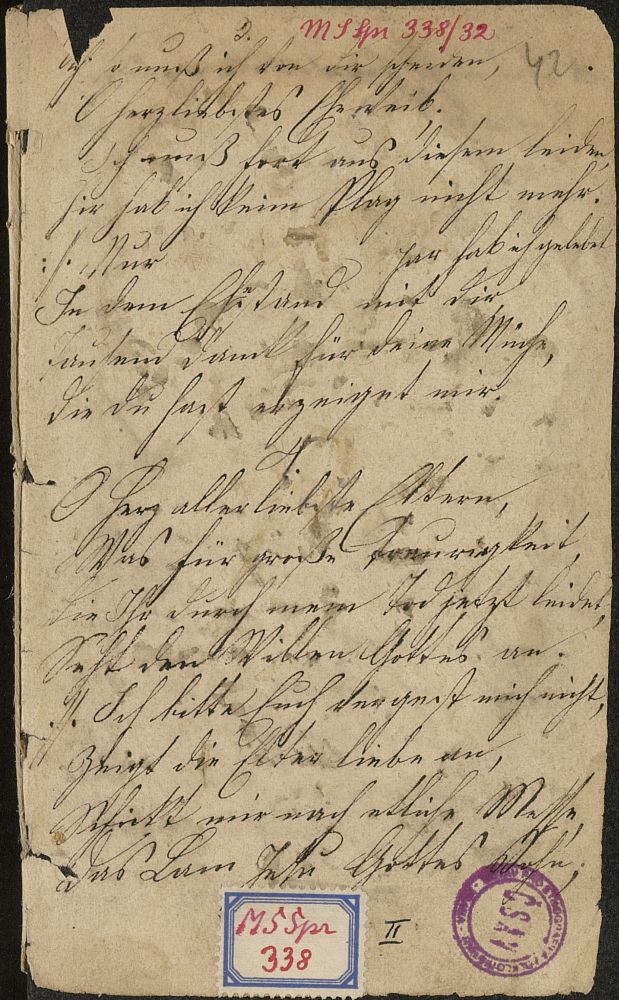 3.
MS Spr 338/32
42
Ach so muß ich von dir scheiden,
O herzliebstes Eheweib.
Ich muß fort aus diesem leiden
hir hab ich keine Plag nicht mehr.
:/: Nur
Jar hab ich gelebet
In dem Ehstand mit dir,
tausend Dank für deine Mühe,
die du hast erzeiget mir.
4.
O Herz allerliebste Eltern,
Was für große Traurigkeit,
die Ihr durch mein Tod jetzt leidet,
Seht den Willen Gottes an.
:/: Ich bitte Euch vergest mich nicht,
Zeigt die Elter liebe an,
Schickt mir nach etliche Messe,
das Lam Jesu Gottes Sohn;
MS Spr
338
II
ČSAV